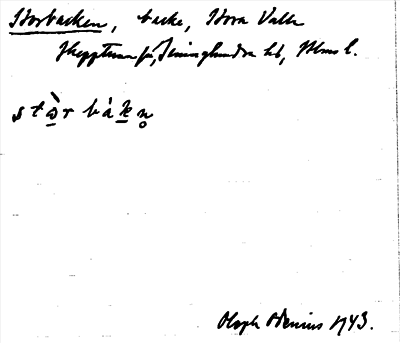 Storbacken, backe, Stora Valla
Skepptuna sn, Seminghundra hd, Sthms l.
stòrbàkn̥
Oloph Odenius 1943.